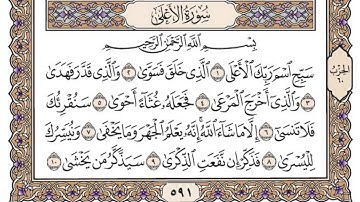 سُورَةُ الأَعْلَىٰ
بِسْمِ اللَّهِ الرَّحْمَٰنِ الرَّحِيمِ
سَبِّحِ اسْمَ رَبِّكَ الْأَعْلَى ١ الَّذِي خَلَقَ فَسَوَّىٰ ٢ وَالَّذِي قَدَّرَ فَهَدَىٰ
٣ وَالَّذِي أَخْرَجَ الْمَرْعَىٰ ٤ فَجَعَلَهُ غُثَاءً أَحْوَىٰ ٥ سَنُقْرِئُكَ
فَلَا تَنسَىٰ ٦ إِلَّا مَا شَاءَ اللَّهُ إِنَّهُ يَعْلَمُ الْجَهْرَ وَمَا يَخْفَىٰ ٧ وَنُيَسِّرُكَ
لِلْيُسْرَىٰ ٨ فَذَكِّرْ إِن نَّفَعَتِ الذِّكْرَىٰ ٩ سَيَذَّكَّرُ مَن يَخْشَىٰ ١٠
الحزب
٦٠
٥٩١